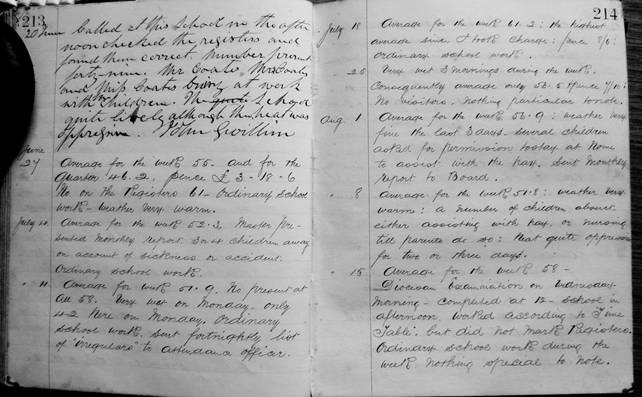 213
20 June Called at this School in the after
noon checked the registers and
found them correct. Number present
forty nine. Mr Coates, Mrs Coates
and Miss Coates busy at work
with the Children. The School
quite lively although the heat was
oppressive. John Gwillim
June
27 Average for the week 55 - and for the
Quarter 46.2. pence £3-18-6
No on the Registers 61 - Ordinary school
work - weather very warm.
July 4 Average for the week 52.3. Master pre-
sented monthly report. 3 or 4 children away
on account of sickness or accident.
Ordinary school work.
" 11 Average for week 51.9. No present at
all 58. Very wet on Monday - only
42 here on Monday. Ordinary
school work. Sent fortnightly list
of "irregulars" to attendance officer.
214
July 18 Average for the week 61.2: the highest
average since I took charge: pence 8/6:
Ordinary school work.
Very wet 3 mornings during the week.
Consequently average only 53.5 pence 7/10:
No visitors, nothing particular to note.
Aug. 1 Average for the week 55.9: weather very
fine the last 3 days. several children
asked for permission today at Home
to assist with the hay. Sent monthly
report to Board.
" 8 Average for the week 51.8: weather very
warm: a number of children absent
either assisting with hay, or nursing
till parents do so: Heat quite oppressive
for two or three days.
" 15 Average for the week 58 -
Diocesan Examination on Wednesday
Morning - completed at 12 - School in
afternoon, worked according to "Time
Table", but did not mark Registers.
Ordinary school work during the
week nothing special to note.